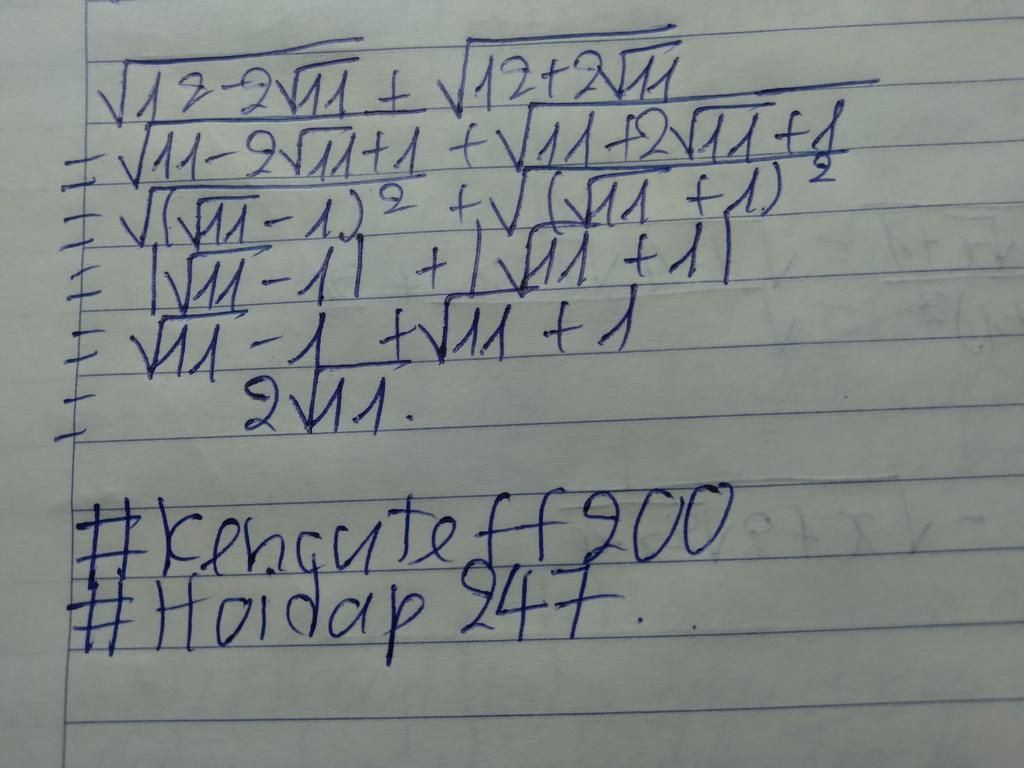 √12-2√11 + √12+2√11
= √11-2√11+1 + √11+2√11+1
= √(√11-1)² + √(√11+1)²
= |√11-1| + |√11+1|
= √11-1 + √11+1
= 2√11.
#Kencuteff200
#Hoidap 247.